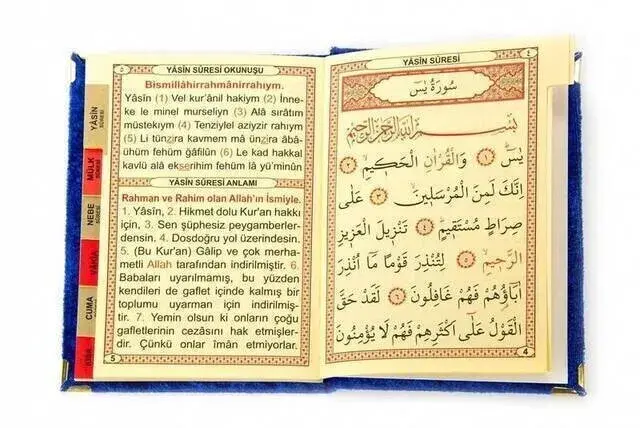 YÂSÎN SÛRESİ ٤
سُورَةُ يٰسٓ
بِسْــــمِ اللّٰهِ الرَّحْمٰنِ الرَّحٖيمِ
يٰسٓ ﴿١﴾ وَالْقُرْاٰنِ الْحَكٖيمِ ﴿٢﴾
اِنَّكَ لَمِنَ الْمُرْسَلٖينَ ﴿٣﴾ عَلٰى
صِرَاطٍ مُسْتَقٖيمٍ ﴿٤﴾ تَنْزٖيلَ الْعَزٖيزِ
الرَّحٖيمِ ﴿٥﴾ لِتُنْذِرَ قَوْمًا مَٓا اُنْذِرَ
اٰبَٓاؤُ۬هُمْ فَهُمْ غَافِلُونَ ﴿٦﴾ لَقَدْ حَقَّ
الْقَوْلُ عَلٰٓى اَكْثَرِهِمْ فَهُمْ لَا يُؤْمِنُونَ
4
٥ YÂSÎN SÛRESİ OKUNUŞU
Bismillâhirrahmânirrahıym.
Yâsîn (1) Vel kur'ânil hakiym (2) İnne-
ke le minel murseliyn (3) Alâ sırâtım
müstekıym (4) Tenziylel aziyzir rahıym
(5) Li tünzira kavmem mâ ünzira âbâ-
ühüm fehüm ğâfilûn (6) Le kad hakkal
kavlü alâ ekserihim fehüm lâ yü'minûn
YÂSÎN SÛRESİ ANLAMI
Rahman ve Rahim olan Allah'ın İsmiyle.
1. Yâsîn, 2. Hikmet dolu Kur'an hakkı
için, 3. Sen şüphesiz peygamberler-
densin. 4. Dosdoğru yol üzerindesin.
5. (Bu Kur'an) Gâlip ve çok merha-
metli Allah tarafından indirilmiştir. 6.
Babaları uyarılmamış, bu yüzden
kendileri de gaflet içinde kalmış bir
toplumu uyarman için indirilmiş-
tir. 7. Yemin olsun ki onların çoğu
gafletlerinin cezasını hak etmişler-
dir. Çünkü onlar îmân etmiyorlar.
5
YÂSÎN
SÛRESİ
MÜLK
SÛRESİ
NEBE
SÛRESİ
VÂKIA
CUMA
SÛRESİ